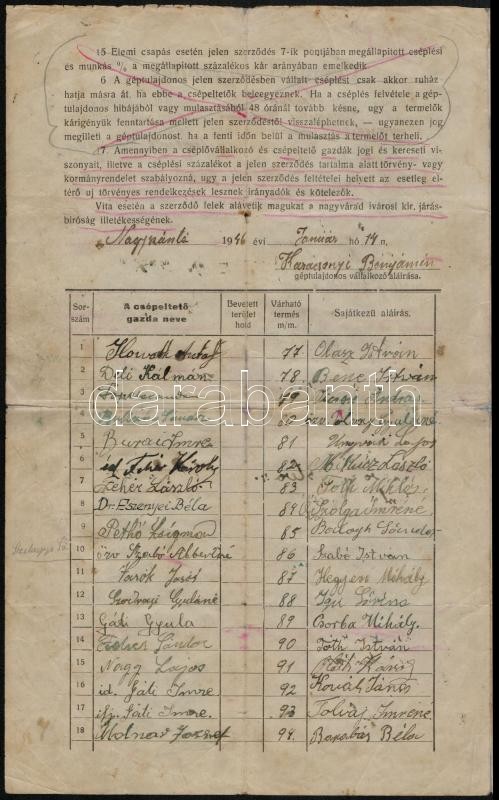 15 Elemi csapás esetén jelen szerződés 7-ik pontjában megállapított cséplési
és munkás % a megállapított százalékos kár arányában emelkedik.
6 A géptulajdonos jelen szerződésben vállalt cséplést csak akkor ruház
hatja másra át, ha ebbe a csépeltetők beleegyeznek. Ha a cséplés felvétele a gép-
tulajdonos hibájából vagy mulasztásából 48 óránál tovább késne, ugy a termelők
kárigényük fenntartása mellett jelen szerződéstől visszaléphetnek, — ugyanezen jog
megilleti a géptulajdonost, ha a fenti időn belül a mulasztás a termelőt terheli.
17. Amennyiben a cséplővállalkozó és csépeltető gazdák jogi és kereseti vi-
szonyait, illetve a cséplési százalékot a jelen szerződés tartalma alatt törvény- vagy
kormányrendelet szabályozná, ugy a jelen szerződés feltételei helyett az esetleg el-
térő uj törvényes rendelkezések lesznek irányadók és kötelezők.
Vita esetén a szerződő felek alávetik magukat a nagyváradi városi kir. járás-
biróság illetékességének.
1946 évi Január hó 14 n,
Karácsonyi Benjámin
géptulajdonos vállalkozó aláirása.
Sor-szám A csépeltető gazda neve Bevetett terület hold Várható termés m/m. Sajátkezű aláirás.
1 Horváth Antal 77 Olasz István
2 Déli Kálmán 78 Bene István
3 79
4 80 Gyuláné
5 Burai Imre 81
6 id Fehér Károly 82 László
7 Fehér László 83 Tóth Miklós
8 Dr. Eszenyei Béla 84 Imréné
9 Pethő Zsigmond 85 Balogh Sándor
10 özv Szabó Albertné 86 Szabó István
11 87 Hegyen Mihály
12 Gyuláné 88
13 Gáti Gyula 89 Borba Mihály
14 Sándor 90 Tóth István
15 Nagy Lajos 91
16 id. Gáti Imre 92 Kovát János
17 ifj. Gáti Imre. 93 Tolvaj Imréné
18 Molnár József 94. Barabás Béla
darabanth
www.darabanth.com